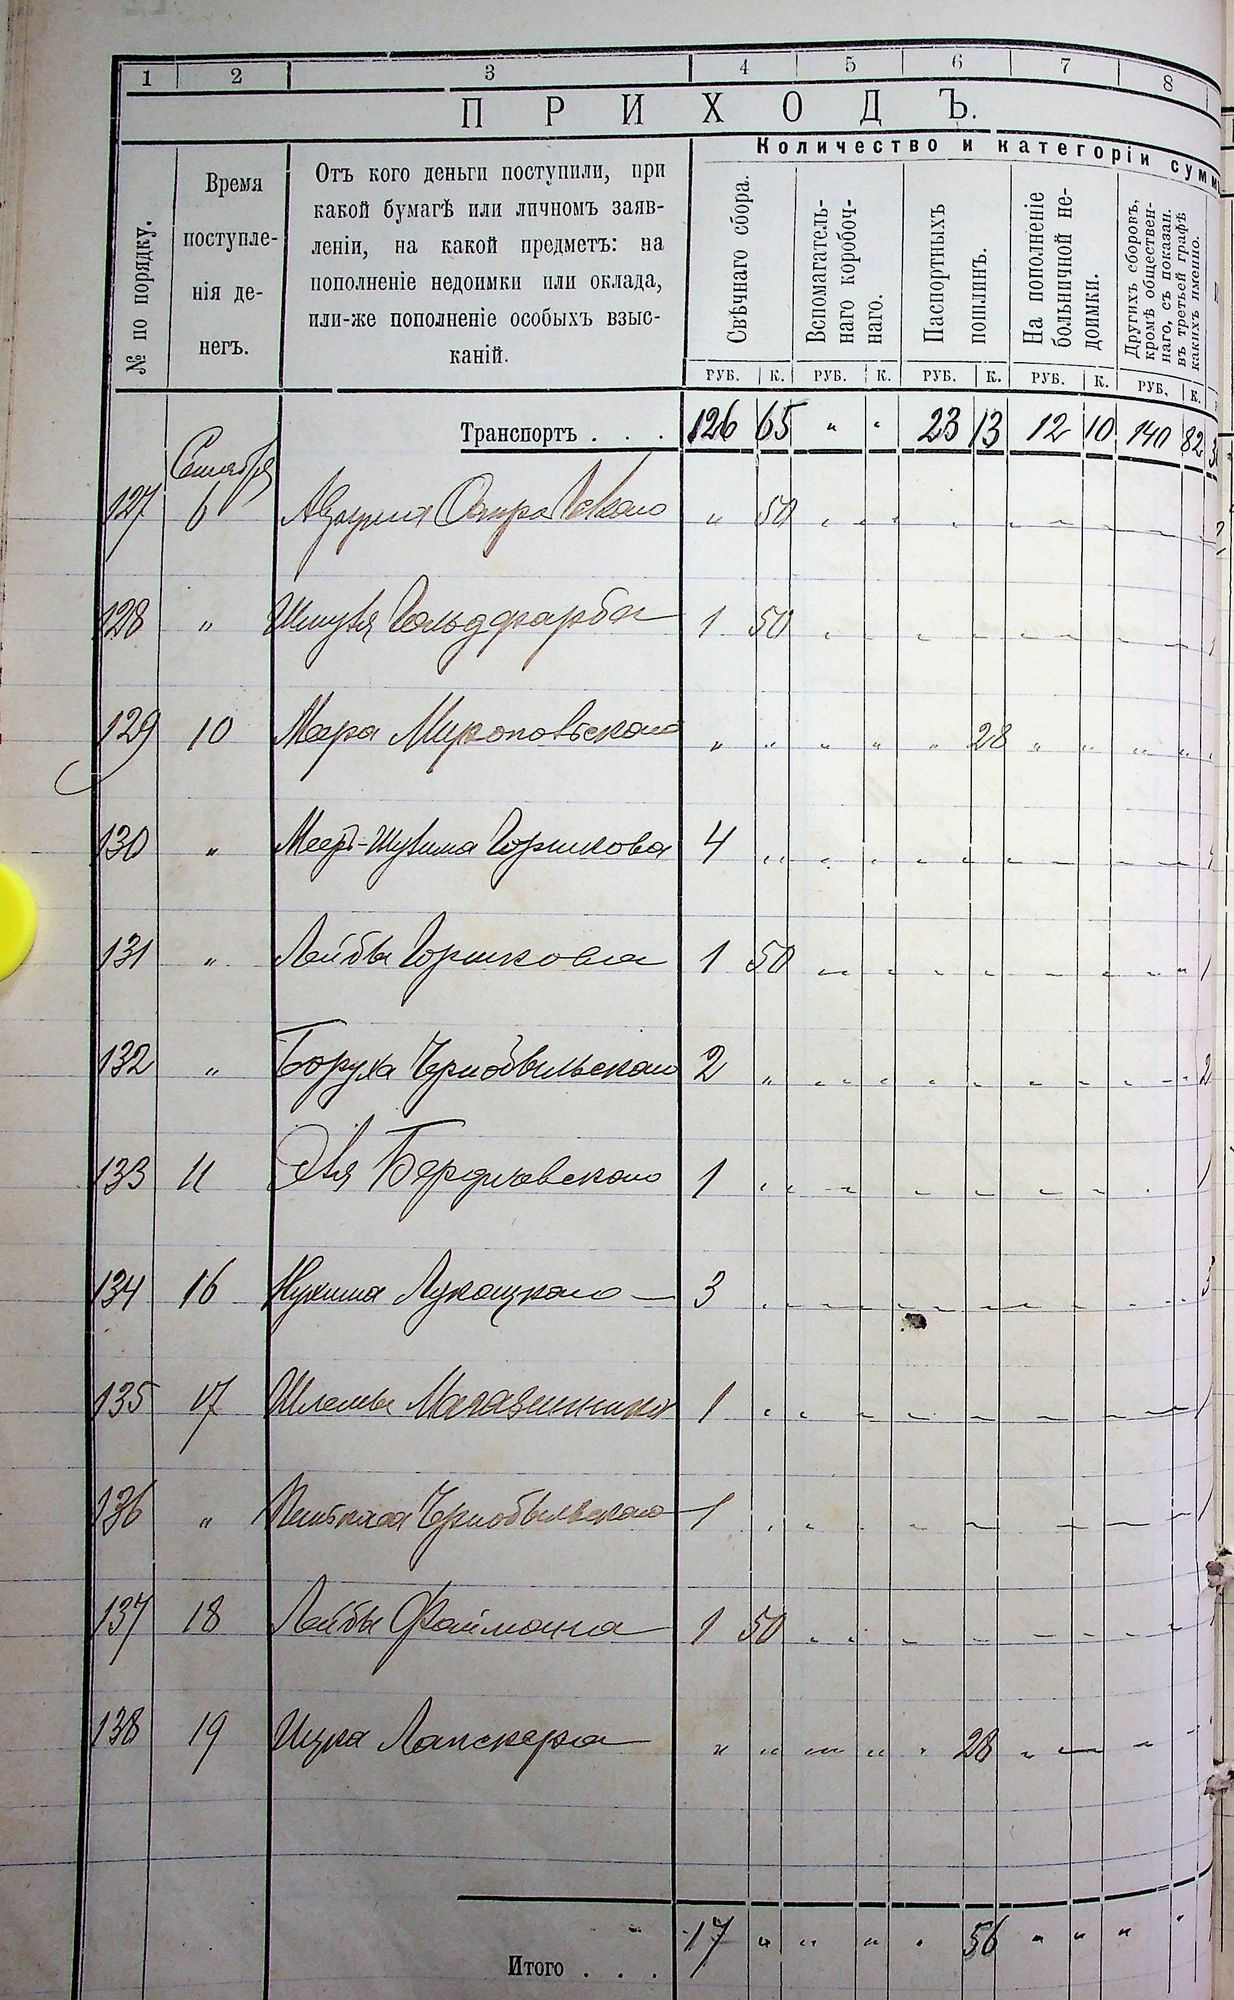 1 2 3 4 5 6 7 8
ПРИХОДЪ.
Количество и категоріи сумм
№ по порядку.
Время
поступле-
нія де-
негъ.
Отъ кого деньги поступили, при
какой бумагѣ или личномъ заяв-
леніи, на какой предметъ: на
пополненіе недоимки или оклада,
или-же пополненіе особыхъ взыс-
каній.
Свѣчнаго сбора.
Вспомагатель-
наго коробоч-
наго.
Паспортныхъ
пошлинъ.
На пополненіе
больничной не-
доимки.
Другихъ сборовъ,
кромѣ обществен-
наго, съ показан.
въ третьей графѣ
какихъ именно.
РУБ. К. РУБ. К. РУБ. К. РУБ. К. РУБ. К.
Транспортъ . . . 126 65 " " 23 13 12 10 140 82
Сентября
127 6 50
128 " Шмуля Гольдфарба 1 50
129 10 28
130 " Горшкова 4
131 " Лейбы Горшкова 1 50
132 " Боруха Чернобыльскаго 2 " 2
133 11 Эля Бердичевскаго 1 1
134 16 Нухима Лукацкаго 3 3
135 17 Шлемы Магазинника 1 1
136 " Чернобыльскаго 1 1
137 18 Лейбы Файмана 1 50
138 19 Ицка Лапскера " " " " " 28
Итого . . . 17 " " " " 56 " " "